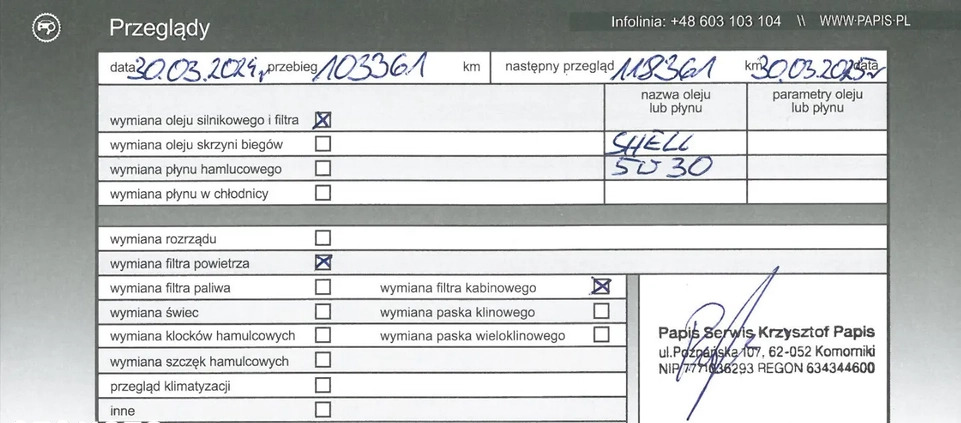 Przeglądy
Infolinia: +48 603 103 104 \\ WWW.PAPIS.PL
data 30.03.2024r przebieg 103361 km następny przegląd 118361 km 30.03.2025r data
nazwa oleju lub płynu
parametry oleju lub płynu
wymiana oleju silnikowego i filtra
wymiana oleju skrzyni biegów SHELL
wymiana płynu hamlucowego 5W30
wymiana płynu w chłodnicy
wymiana rozrządu
wymiana filtra powietrza
wymiana filtra paliwa wymiana filtra kabinowego
wymiana świec wymiana paska klinowego
wymiana klocków hamulcowych wymiana paska wieloklinowego
wymiana szczęk hamulcowych
przegląd klimatyzacji
inne
Papis Serwis Krzysztof Papis
ul.Poznańska 107, 62-052 Komorniki
NIP 7771036293 REGON 634344600